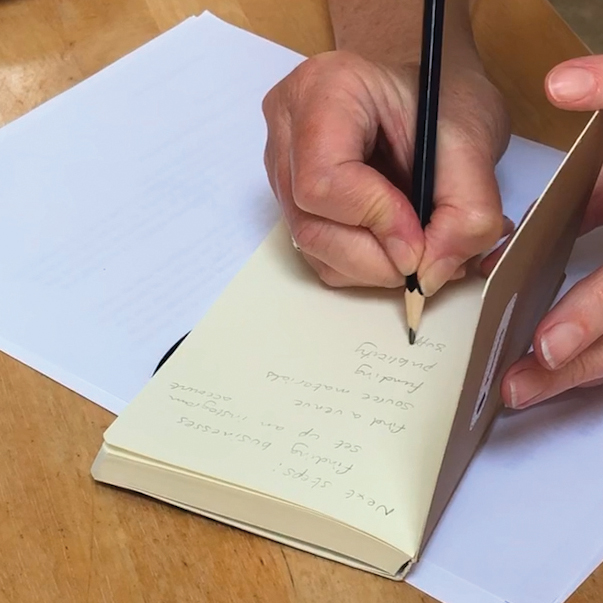 Next steps:
finding businesses
set up an instagram
account
find a venue
source materials
funding
publicity
supp